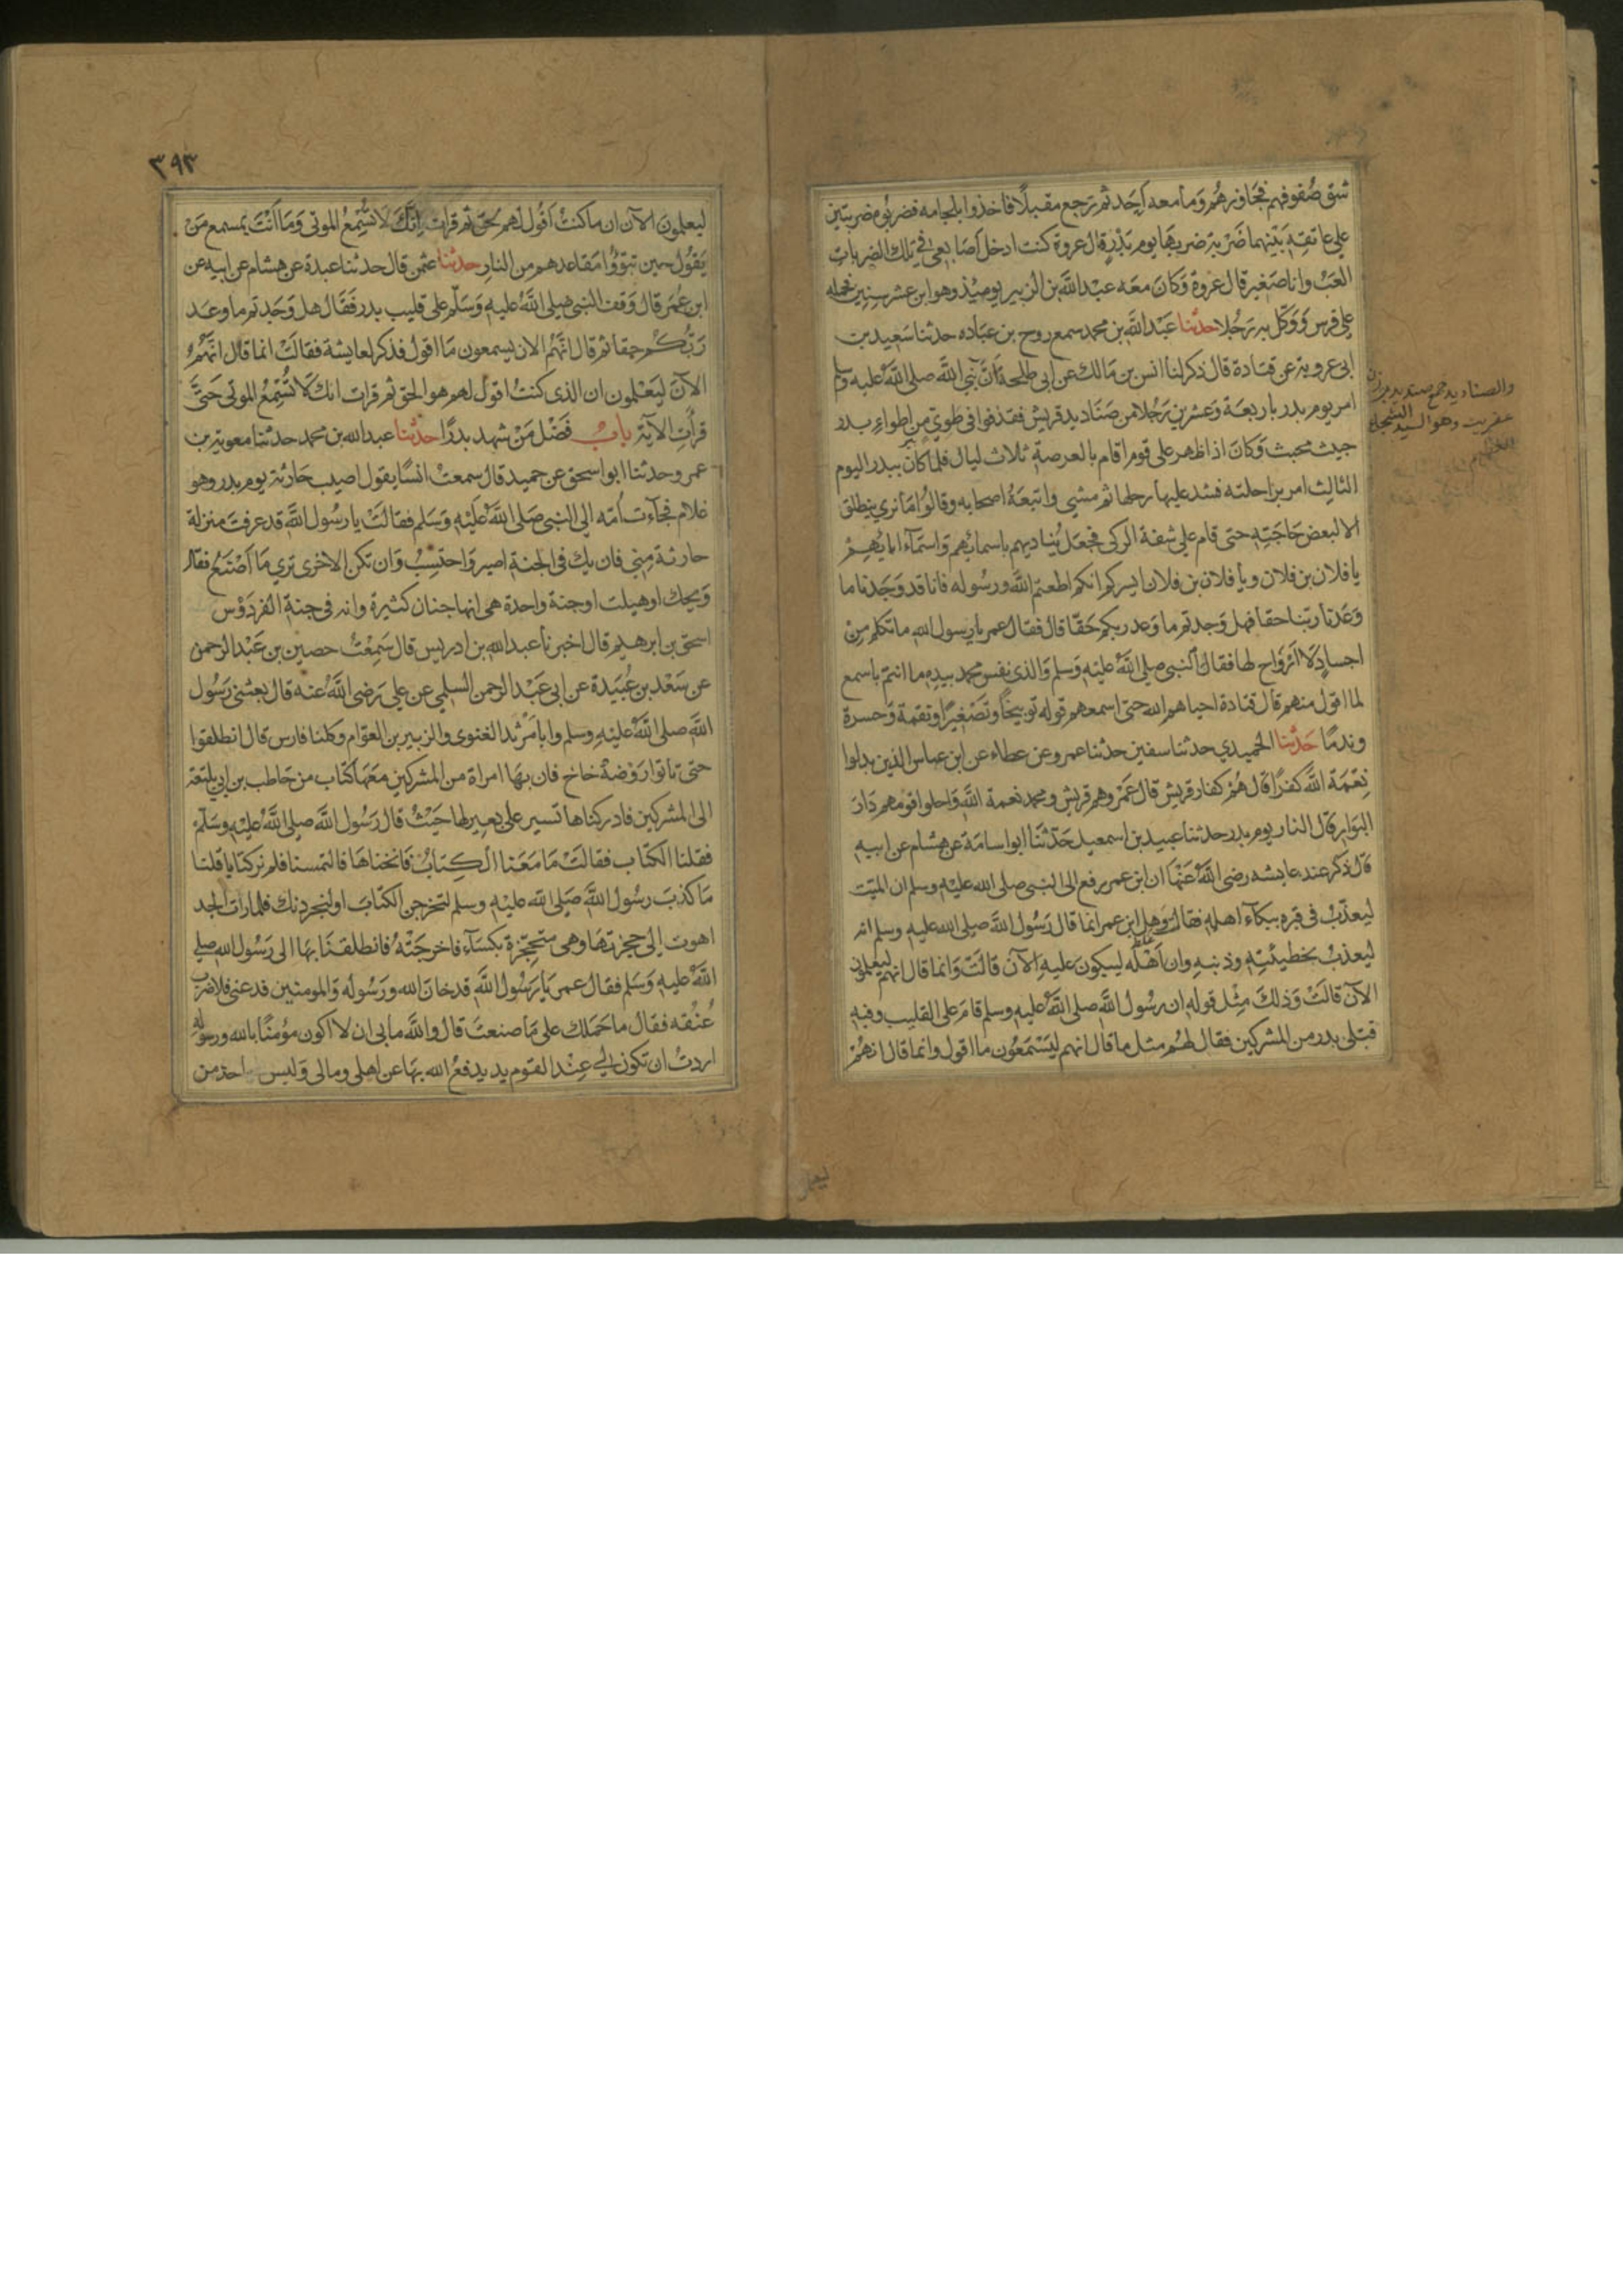 شق صفوفهم فجاوزهم وما معه احد ثم رجع مقبلا فاخذوا بلجامه فضربوه ضربتين
علي عاتقه بينهما ضربة ضربها يوم بدر قال عروة كنت ادخل اصابعي في تلك الضربات
العب وانا صغير قال عروة وكان معه عبد الله بن الزبير يوميذ وهو ابن عشر سنين فحمله
علي فرس ووكل به رجلا حدثنا عبد الله بن محمد سمع روح بن عباده حدثنا سعيد بن
ابي عروبة عن قتادة قال ذكر لنا انس بن مالك عن ابي طلحة ان نبي الله صلي الله عليه وسلم
امر يوم بدر باربعة وعشرين رجلا من صناديد قريش فقذفوا في طوي من اطواء بدر
خبيث مخبث وكان اذا ظهر علي قوم اقام بالعرصة ثلاث ليال فلما كان ببدر اليوم
الثالث امر براحلته فشد عليها رحلها ثم مشي واتبعه اصحابه وقالوا ما نري ينطلق
الا لبعض حاجته حتى قام علي شفة الركي فجعل يناديهم باسمائهم واسماء ابايهم
يا فلان بن فلان ويا فلان بن فلان ايسركم انكم اطعتم الله ورسوله فانا قد وجدنا ما
وعدنا ربنا حقا فهل وجدتم ما وعد ربكم حقا قال فقال عمر يا رسول الله ما تكلم من
اجساد لا ارواح لها فقال النبي صلي الله عليه وسلم والذي نفس محمد بيده ما انتم باسمع
لما اقول منهم قال قتادة احياهم الله حتى اسمعهم قوله توبيخا وتصغيرا ونقمة وحسرة
وندما حدثنا الحميدي حدثنا سفين حدثنا عمرو عن عطاء عن ابن عباس الذين بدلوا
نعمة الله كفرا قال هم كفار قريش قال عمرو هم قريش ومحمد نعمة الله واحلوا قومهم دار
البوار قال النار يوم بدر حدثنا عبيد بن اسمعيل حدثنا ابو اسامة عن هشام عن ابيه
قال ذكر عند عايشه رضي الله عنها ان ابن عمر رفع الى النبي صلى الله عليه وسلم ان الميت
ليعذب في قبره ببكاء اهله فقالت وهل ابن عمر انما قال رسول الله صلي الله عليه وسلم انه
ليعذب بخطيئته وذنبه وان اهله ليبكون عليه الآن قالت وانما قال انهم ليعلمون
الآن قالت وذلك مثل قوله ان رسول الله صلي الله عليه وسلم قام على القليب وفيه
قتلى بدر من المشركين فقال لهم مثل ما قال انهم ليسمعون ما اقول وانما قال انهم
والصناديد جمع صنديد بوزن
عفريت وهو السيد الشجاع
٣٩٣
ليعلمون الآن ان ما كنت اقول لهم حق ثم قرات انك لا تسمع الموتى وما انت بمسمع من
يقول حين تبوؤا مقاعدهم من النار حدثنا عثمن قال حدثنا عبدة عن هشام عن ابيه عن
ابن عمر قال وقف النبي صلي الله عليه وسلم على قليب بدر فقال هل وجدتم ما وعد
ربكم حقا ثم قال انهم الان يسمعون ما اقول فذكر لعايشة فقالت انما قال انهم
الآن ليعلمون ان الذي كنت اقول لهم هو الحق ثم قرات انك لا تسمع الموتى حتى
قرأت الآية باب فضل من شهد بدرا حدثنا عبد الله بن محمد حدثنا معوية بن
عمرو حدثنا ابو اسحق عن حميد قال سمعت انسا يقول اصيب حارثة يوم بدر وهو
غلام فجاءت امه الي النبي صلى الله عليه وسلم فقالت يا رسول الله قد عرفت منزلة
حارثة مني فان يك في الجنة اصبر واحتسب وان تكن الاخرى تري ما اصنع فقال
ويحك اوهبلت اوجنة واحدة هي انها جنان كثيرة وانه في جنة الفردوس
اسحق بن ابرهيم قال اخبرنا عبد الله بن ادريس قال سمعت حصين بن عبد الرحمن
عن سعد بن عبيدة عن ابي عبد الرحمن السلمي عن علي رضي الله عنه قال بعثني رسول
الله صلى الله عليه وسلم وابا مرثد الغنوي والزبير بن العوام وكلنا فارس قال انطلقوا
حتى تاتوا روضة خاخ فان بها امراة من المشركين معها كتاب من حاطب بن ابي بلتعة
الى المشركين فادركناها تسير علي بعير لها حيث قال رسول الله صلى الله عليه وسلم
فقلنا الكتاب فقالت ما معنا الكتاب فانخناها فالتمسنا فلم نر كتابا فقلنا
ما كذب رسول الله صلى الله عليه وسلم لتخرجن الكتاب او لنجردنك فلما رات الجد
اهوت الى حجزتها وهي محتجزة بكساء فاخرجته فانطلقنا بها الى رسول الله صلي
الله عليه وسلم فقال عمر يا رسول الله قد خان الله ورسوله والمومنين فدعني فلاضرب
عنقه فقال ما حملك على ما صنعت قال والله ما بي ان لا اكون مؤمنا بالله ورسوله
اردت ان تكون لي عند القوم يد يدفع الله بها عن اهلي ومالى وليس احد من